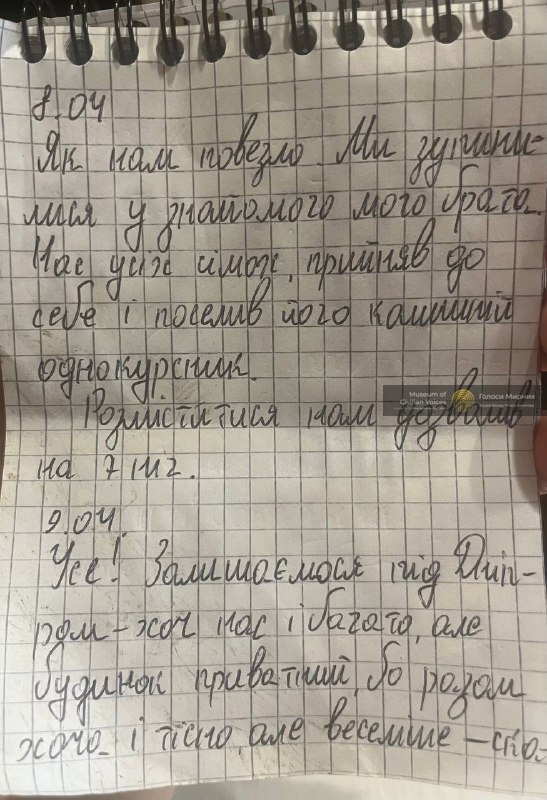 8.04
Як нам повезло. Ми зупини-
лися у знайомого мого брата.
Нас усіх, прийняв до
себе і поселив його колишній
однокурсник.
Museum of
Civilian Voices
Голоси Мирних
Розміститися нам дозволив
на 7 міс.
9.04.
Усе! Залишаємося під Дніп-
ром – хоч нас і багато, але
будинок приватний, бо разом
хоча і тісно, але веселіше – спо-